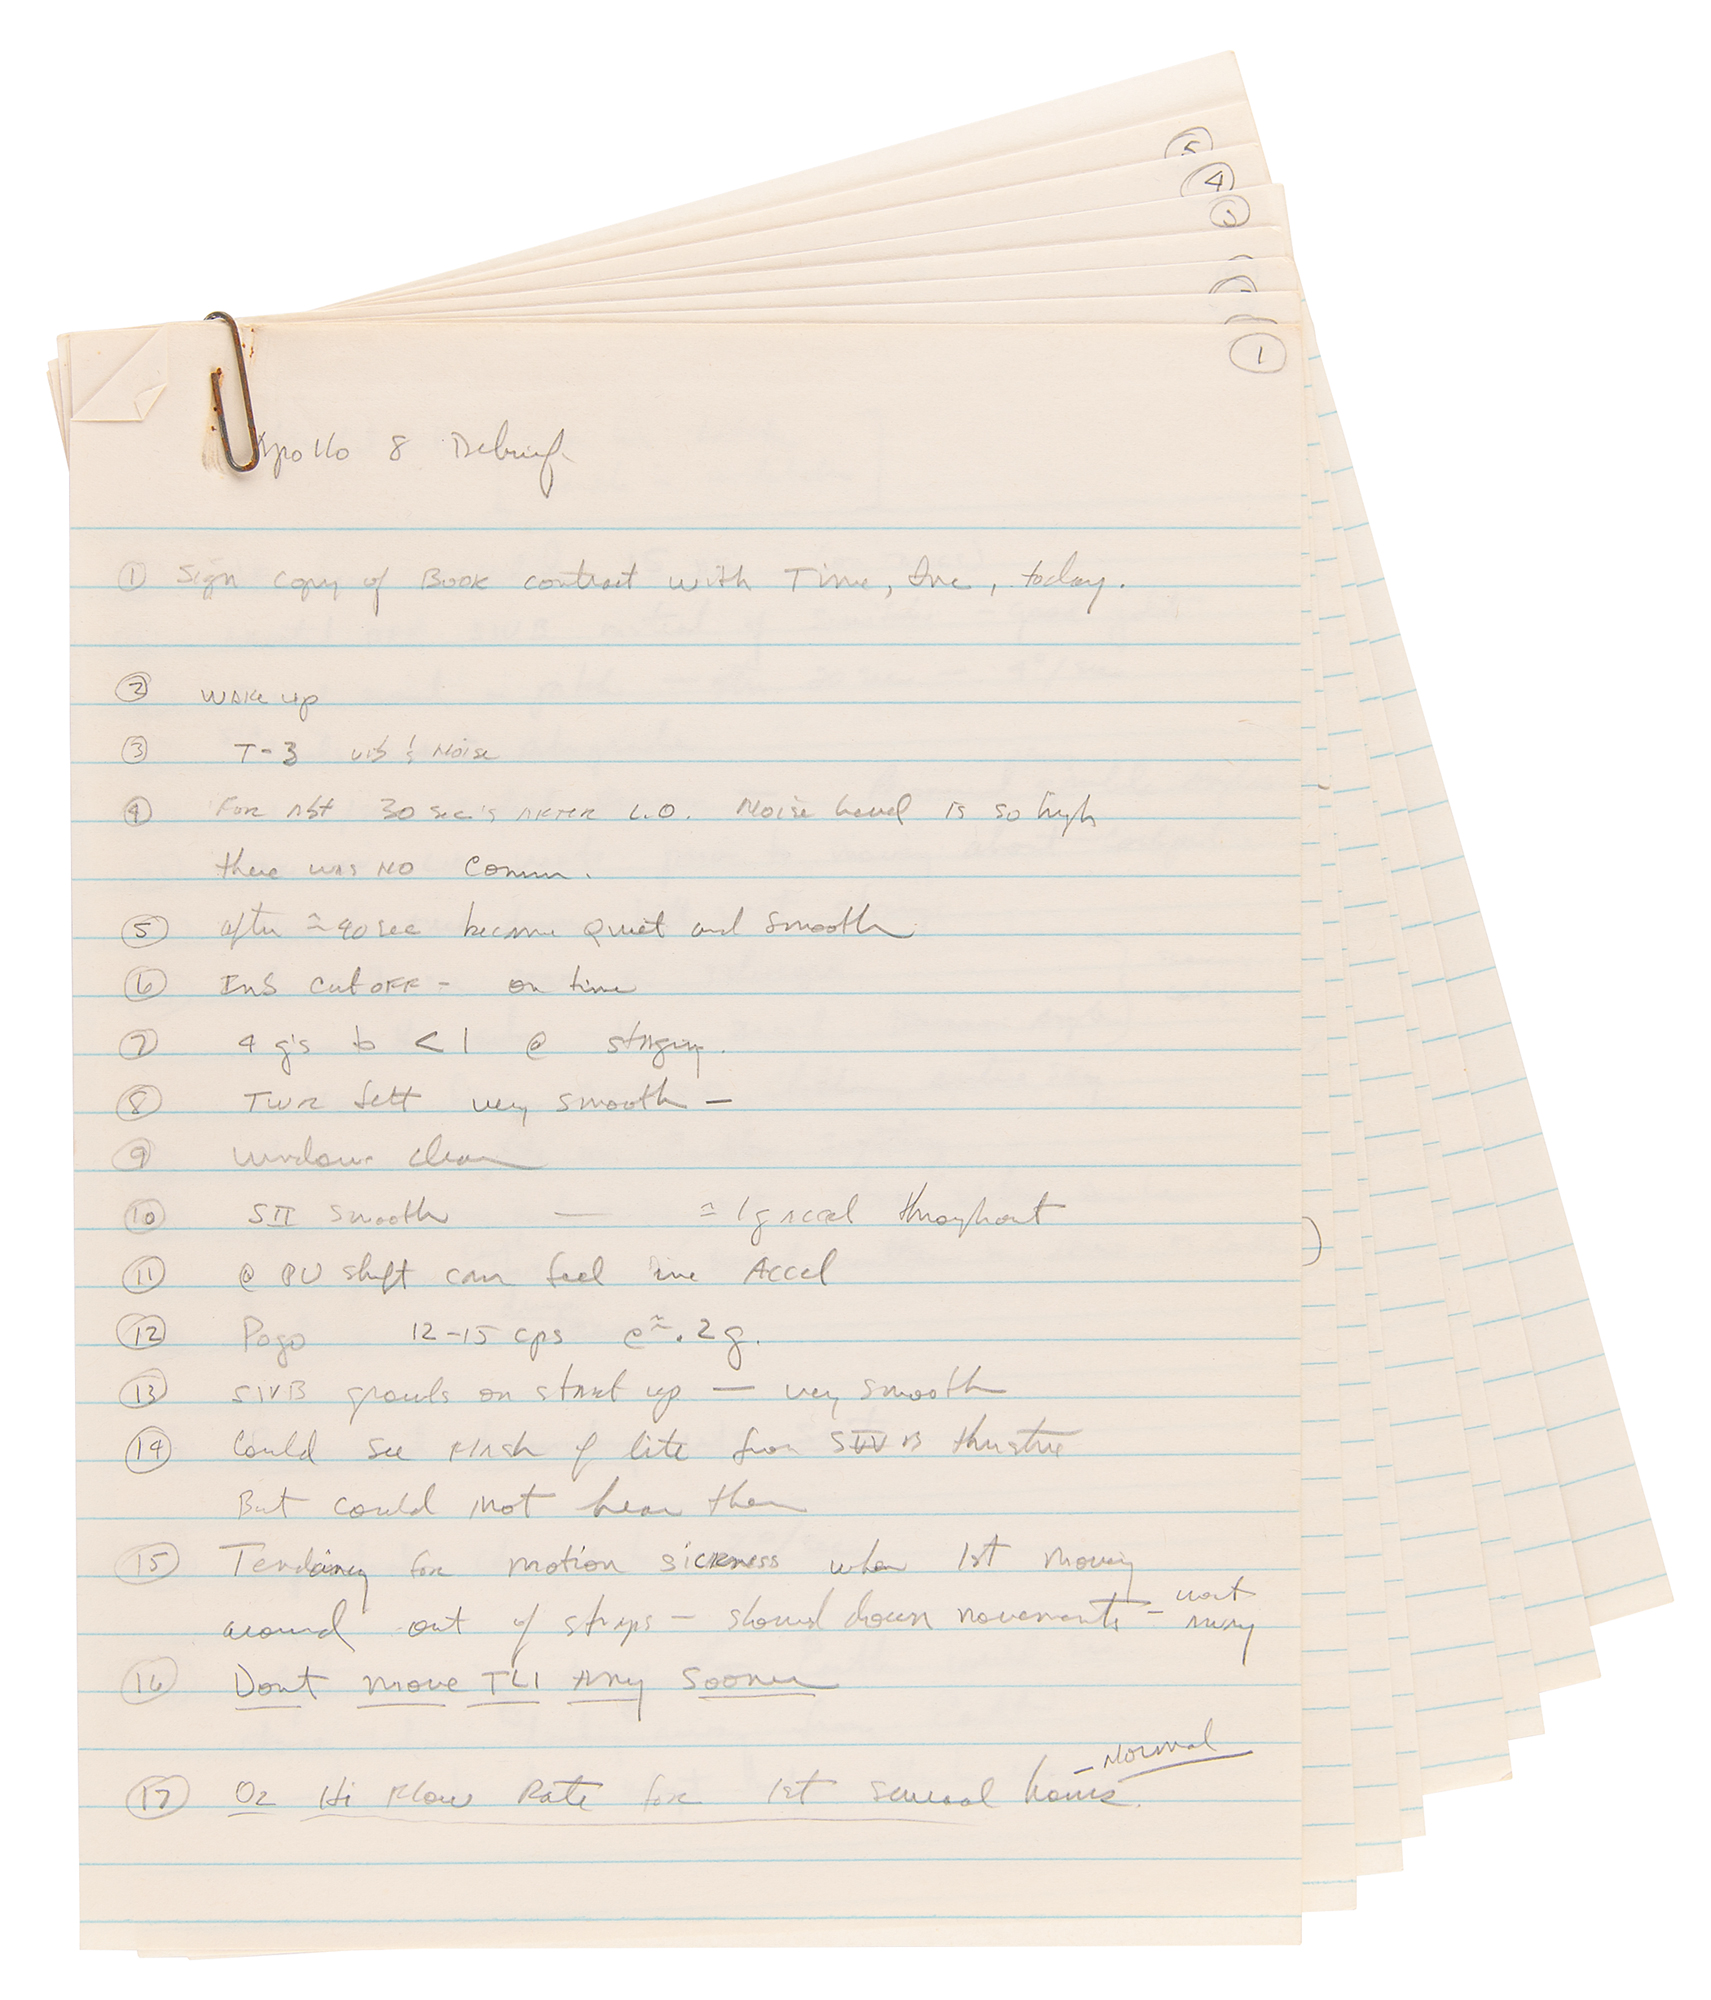 5
4
3
1
Apollo 8 Debrief
① Sign copy of Book contract with Time, Inc, today.
② WAKE up
③ T-3 vib & Noise
④ For Abt 30 sec's AFTER L.O. Noise level is so high
there was NO Comm.
⑤ after ≈ 40 sec became Quiet and smooth
⑥ Cut OFF - on time
⑦ 4 g's to < 1 @ staging.
⑧ TWR Jett very smooth —
⑨ windows clear
⑩ SII smooth — ≈ 1g Accel throughout
⑪ @ PU shift can feel Accel
⑫ Pogo 12-15 cps @ ≈ .2g.
⑬ SIVB growls on start up — very smooth
⑭ Could see Flash of lite from SIVB thrusters
But could not hear them
⑮ Tendency for motion sickness when 1st moving
around out of straps - slowed down movements - went
away
⑯ Dont move TLI Any Sooner
⑰ O2 Hi Flow Rate for 1st several hours. - Normal